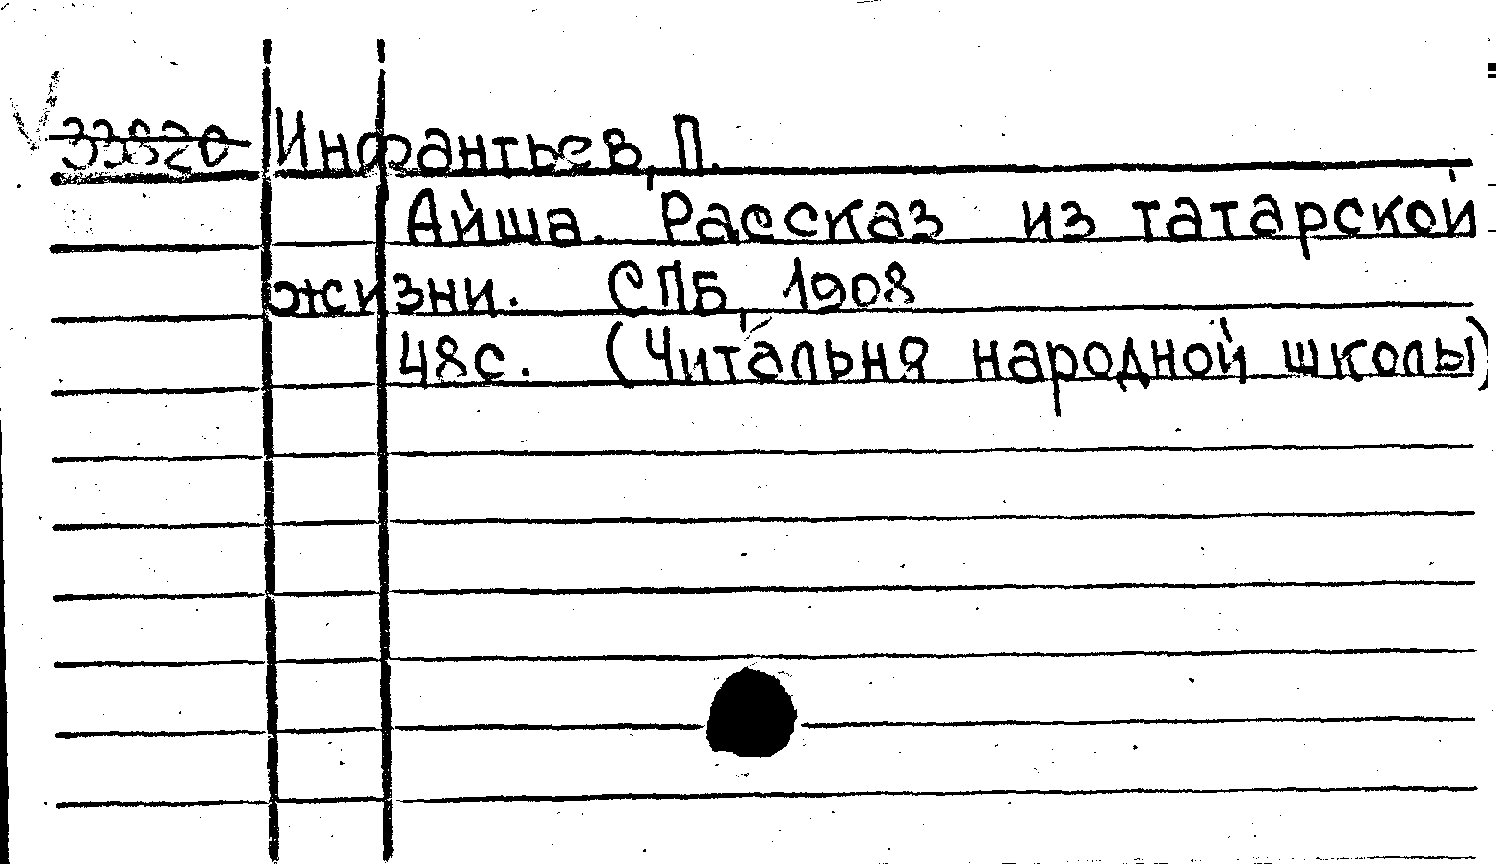 33820 Инфантьев, П.
Айша. Рассказ из татарской
жизни. СПБ, 1908
48с. (Читальня народной школы)